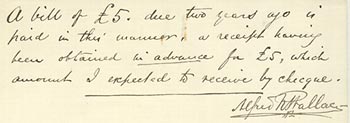 A bill of £5. due two years ago is
paid in this manner: a receipt having
been obtained in advance for £5, which
amount I expected to receive by cheque.
Alfred R Wallace